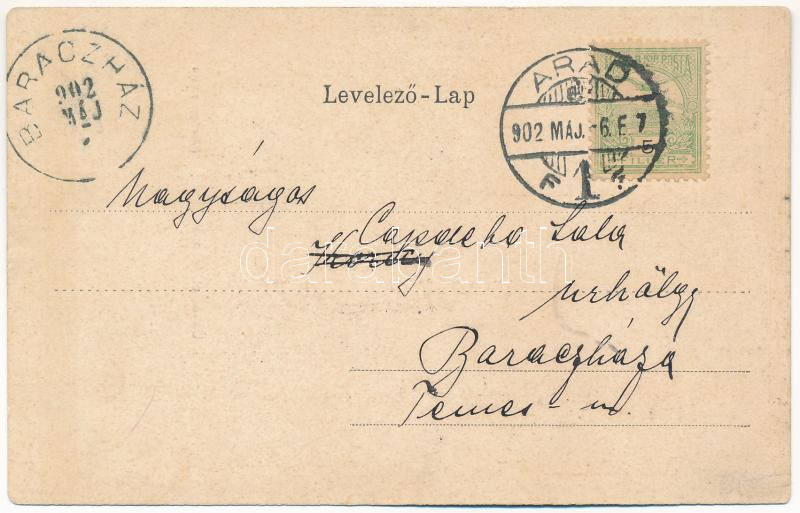 BARACZHÁZ
902
MÁJ
Levelező-Lap
ARAD
902 MÁJ. -6. E 7
1
5
Nagyságos
Lala
úrhölgy
Baraczháza
Temes - m.
darabanth